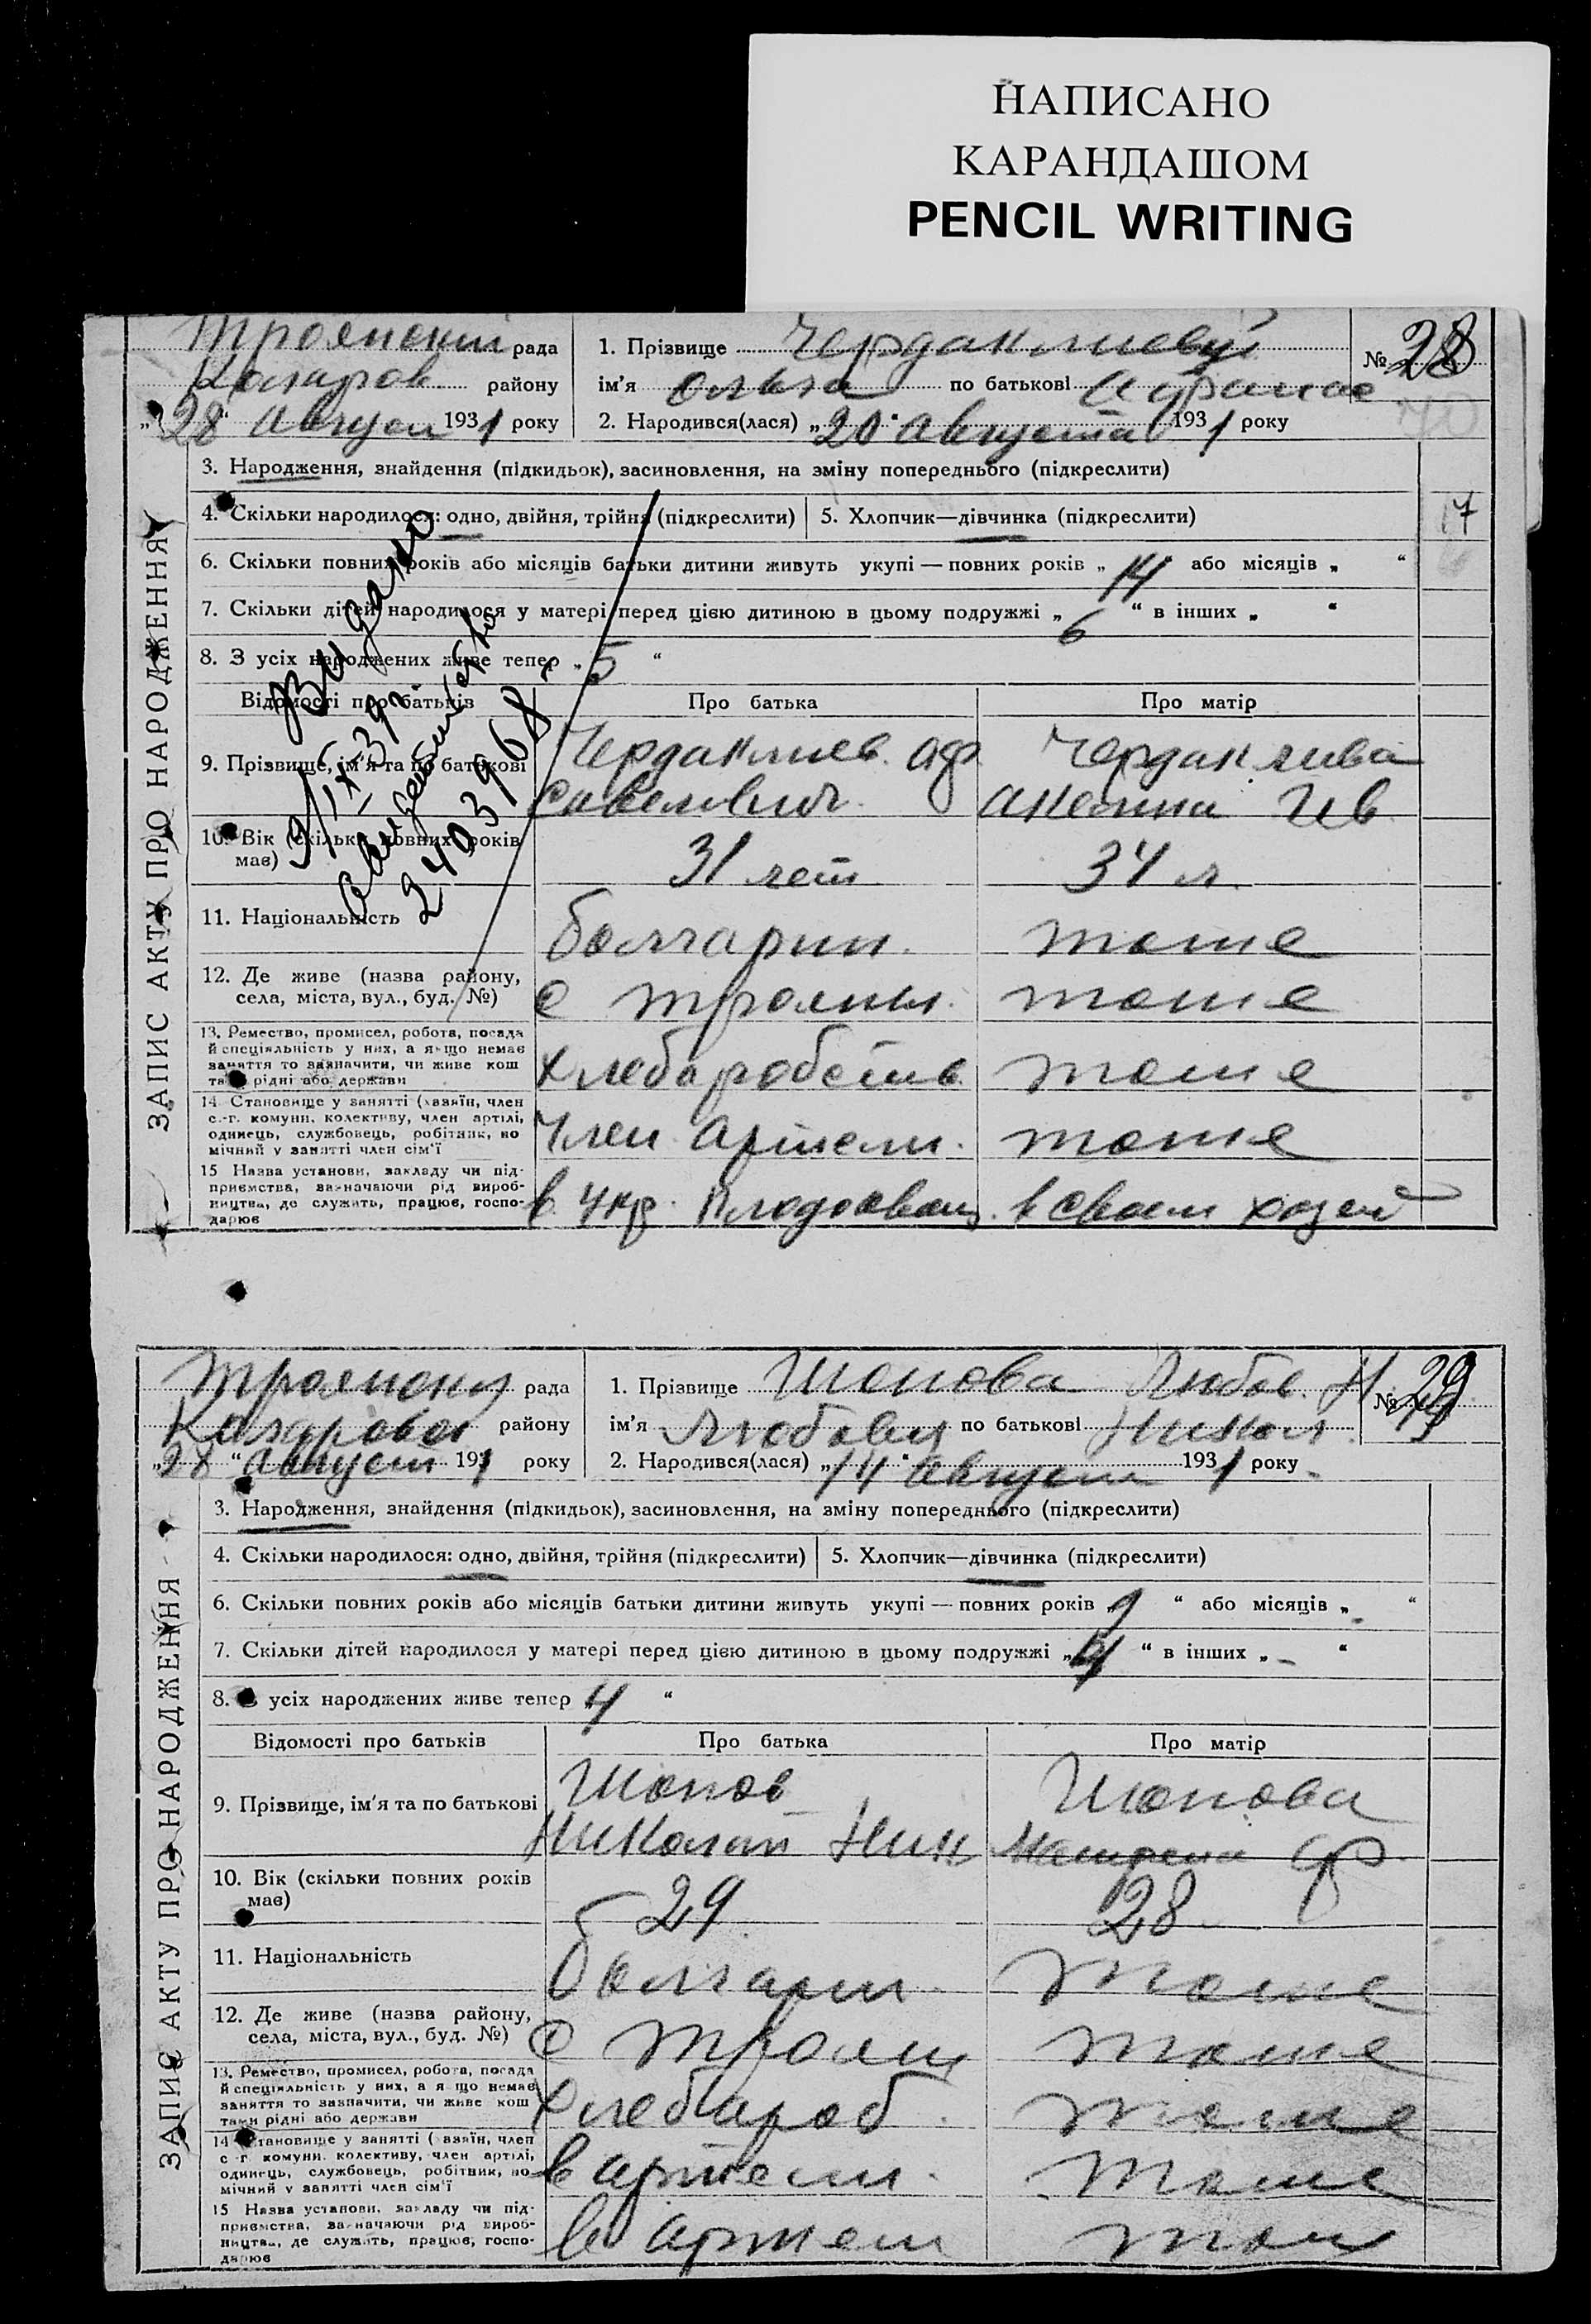 НАПИСАНО
КАРАНДАШОМ
PENCIL WRITING
Троянский рада
1. Прізвище Чердаклиевуй
№ 28
Коларов району
ім'я Ольга по батькові Афанас
„28“ Август 1931 року
2. Народився(лася) „20“ Августа 1931 року
ЗАПИС АКТУ ПРО НАРОДЖЕННЯ
3. Народження, знайдення (підкидьок), засиновлення, на зміну попереднього (підкреслити)
4. Скільки народилося: одно, двійня, трійня (підкреслити)
5. Хлопчик—дівчинка (підкреслити)
17
6. Скільки повних років або місяців батьки дитини живуть укупі — повних років „14 або місяців „ “
7. Скільки дітей народилося у матері перед цією дитиною в цьому подружжі „6“ в інших „ “
8. З усіх народжених живе тепер „5“
Видано
9/IX-39г.
Свидетельство
2403968
Відомості про батьків
Про батька
Про матір
9. Прізвище, ім'я та по батькові
Чердаклиев. Аф.
Савелович.
Чердаклива
Аксинна Ив.
10. Вік (скільки повних років має)
31 лет
34 л.
11. Національність
болгарин.
тоже
12. Де живе (назва району,
села, міста, вул., буд. №)
с Трояны.
тоже
13. Ремество, промисел, робота, посада
й спеціяльність у них, а якщо немає
заняття то зазначити, чи живе кош
тами рідні або держави
хлеборобств.
тоже
14 Становище у занятті (хазяїн, член
с.-г. комуни, колективу, член артілі,
одинець, службовець, робітник, по
мічний у занятті член сім'ї
Член Артели.
тоже
15 Назва установи, закладу чи під-
приємства, зазначаючи рід вироб-
ництва, де служить, працює, госпо-
дарює
в Укр.
в своем хозей
Троянский рада
1. Прізвище Шопова Любов. Н
№ 29
Коларовск району
ім'я Любовь по батькові Никол.
„28“ Август 1931 року
2. Народився(лася) „14“ Август 1931 року
ЗАПИС АКТУ ПРО НАРОДЖЕННЯ
3. Народження, знайдення (підкидьок), засиновлення, на зміну попереднього (підкреслити)
4. Скільки народилося: одно, двійня, трійня (підкреслити)
5. Хлопчик—дівчинка (підкреслити)
6. Скільки повних років або місяців батьки дитини живуть укупі — повних років „9“ або місяців „-“
7. Скільки дітей народилося у матері перед цією дитиною в цьому подружжі „4“ в інших „-“
8. З усіх народжених живе тепер 4“
Відомості про батьків
Про батька
Про матір
9. Прізвище, ім'я та по батькові
Шопов
Николай Ник
Шопова
Ф.
10. Вік (скільки повних років
має)
29
28
11. Національність
болгарин.
тоже
12. Де живе (назва району,
села, міста, вул., буд. №)
с Трояны
тоже
13. Ремество, промисел, робота, посада
й спеціяльність у них, а якщо немає
заняття то зазначити, чи живе кош
тами рідні або держави
хлебароб.
тоже
14 Становище у занятті (хазяїн, член
с.-г. комуни, колективу, член артілі,
одинець, службовець, робітник, по
мічний у занятті член сім'ї
в артели.
тоже
15 Назва установи, закладу чи під-
приємства, зазначаючи рід вироб-
ництва, де служить, працює, госпо-
дарює
в артели
тоже